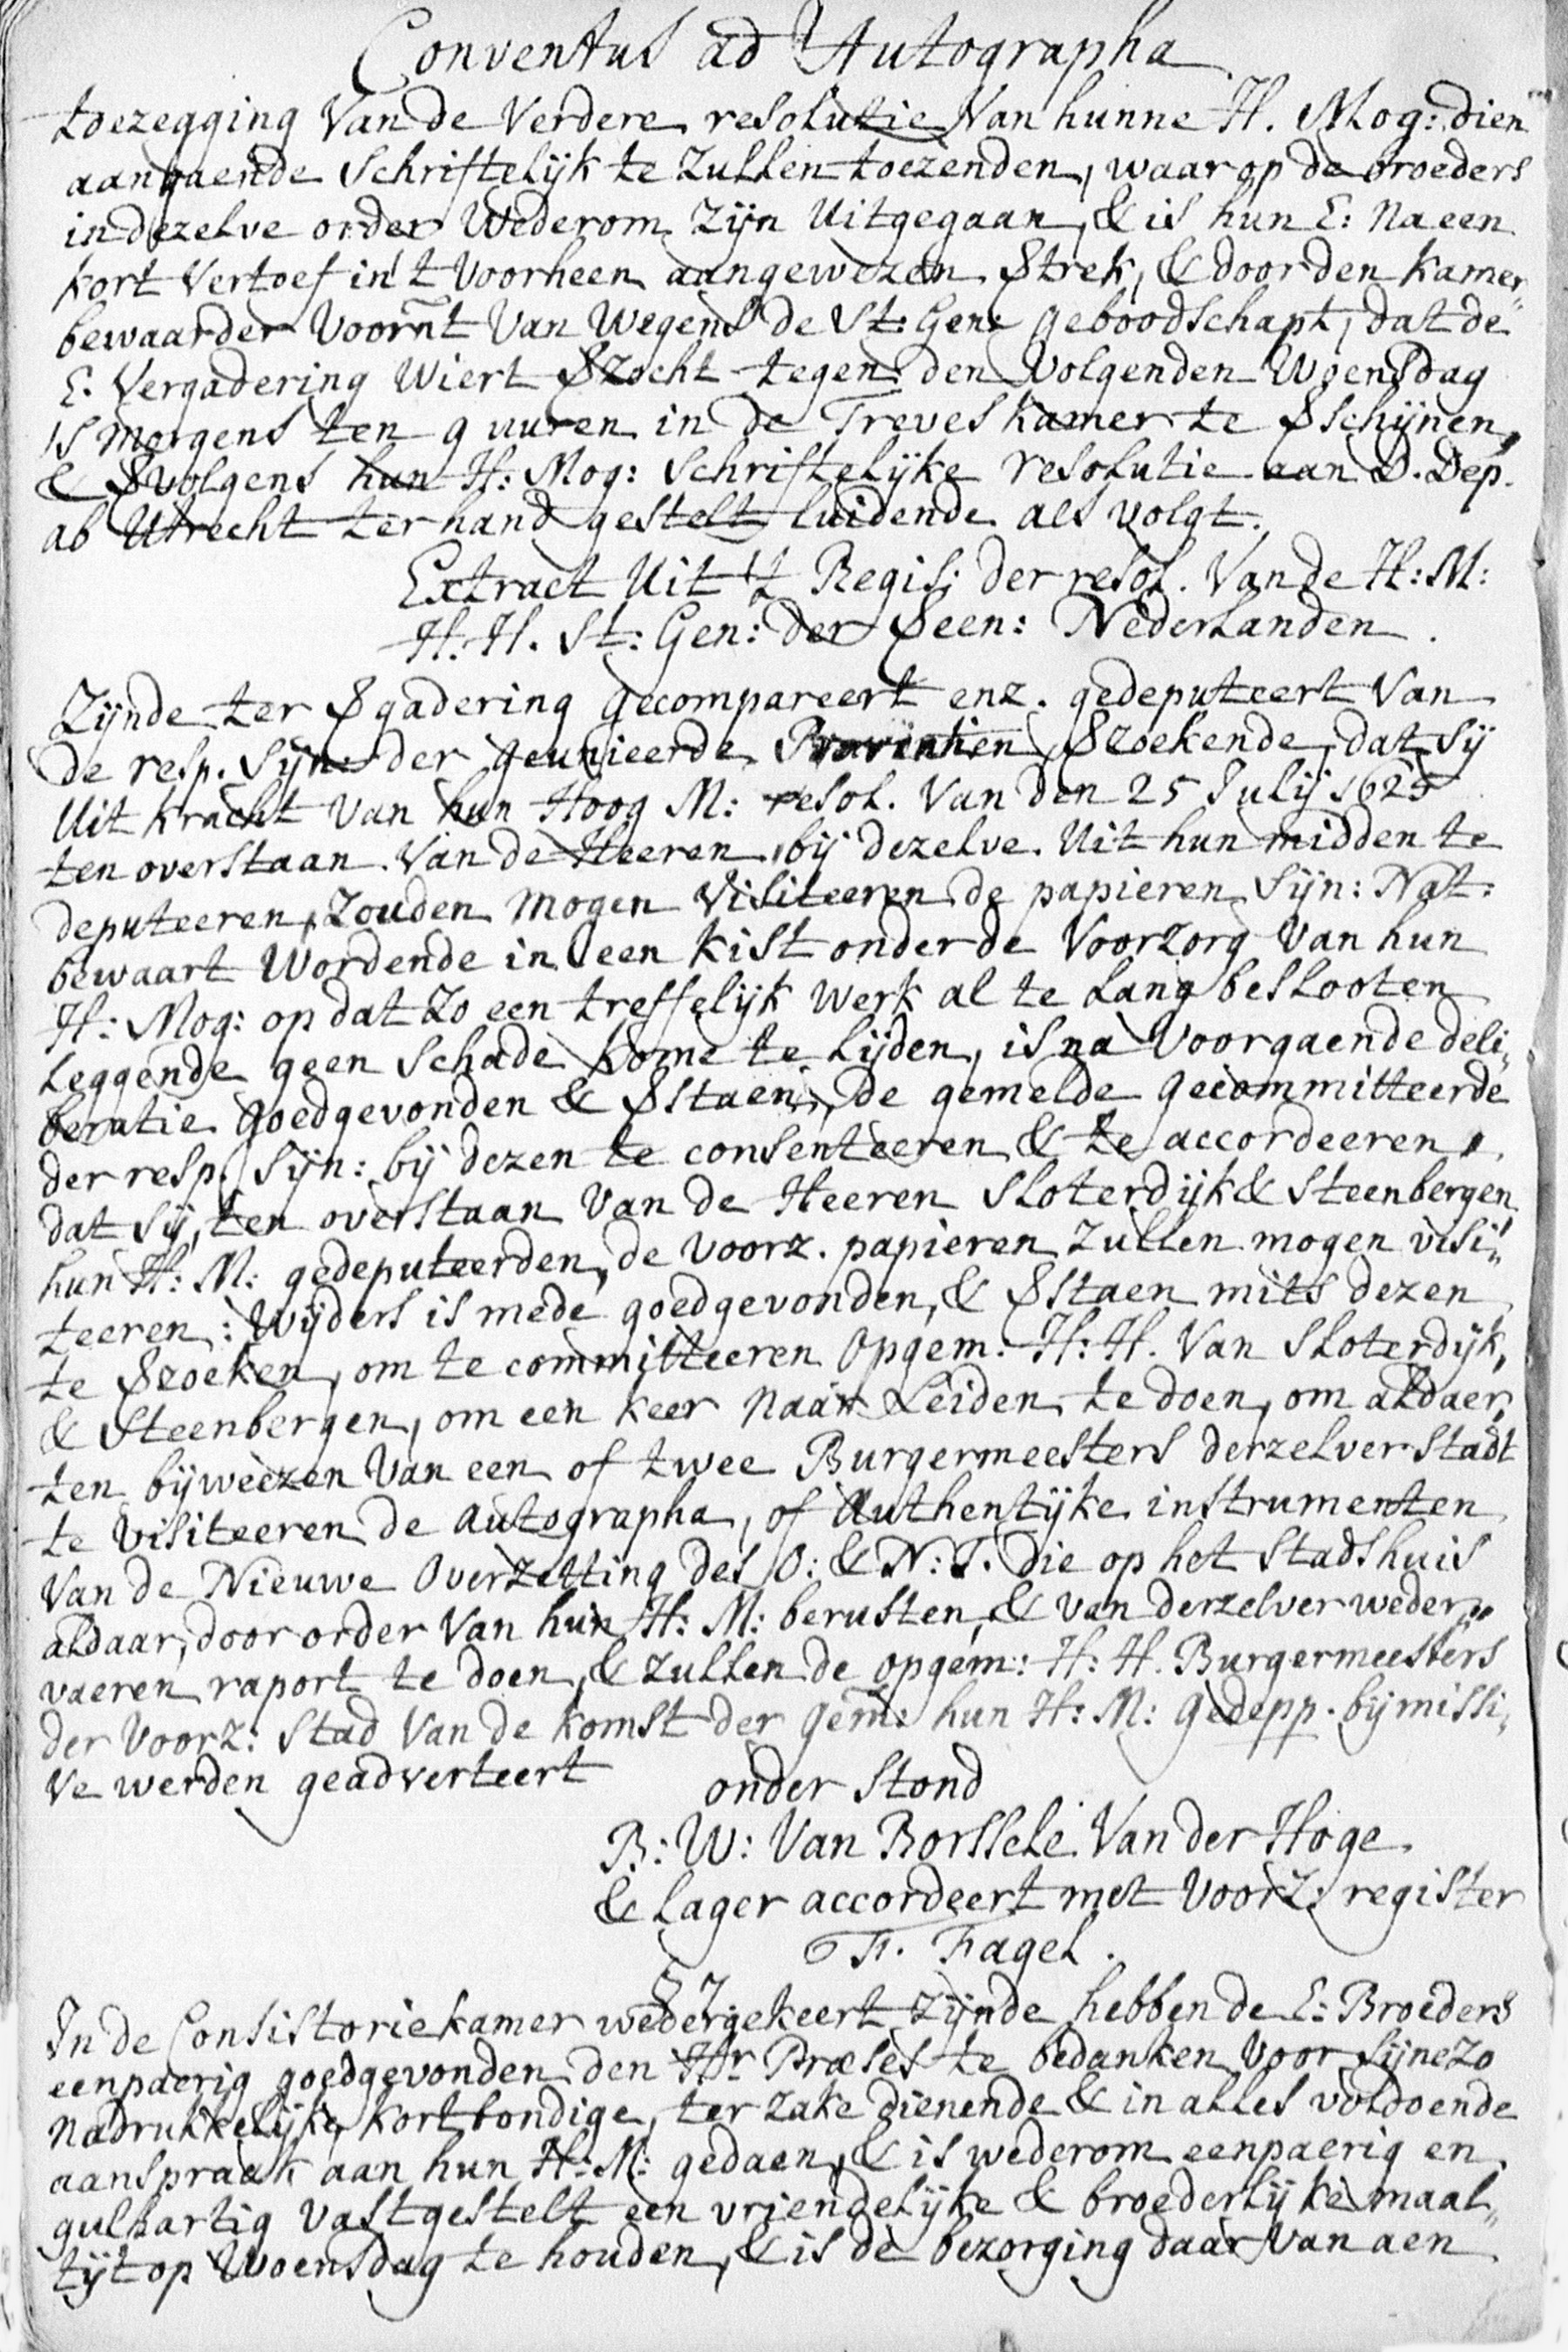 Conventus ad Autographa
toezegging Van de Verdere resolutie Van hunne H. Mog: dien
aangaende Schriftelijk te Zullen toezenden, waar op de broeders
in dezelve order Wederom Zijn Uitgegaan, & is hun E: Na een
kort Vertoef in 't Voorheen aangewezen Strek, & door den Kamer„
bewaarder Voorn̄t Van Wegens de St: Gen: geboodschapt, dat de
E. Vergadering Wiert Vzocht tegen den Volgenden Woensdag
's Morgens ten 9 uuren in de Treves kamer te Vschijnen,
& Vvolgens hun H: Mog: Schriftelijke resolutie aan D. Dep.
ab Utrecht ter hand gestelt luidende als volgt.
Extract Uit 't Regis: der resol. Van de H: M:
H. H. St: Gen: der Veen: Nederlanden.
Zijnde ter Vgadering gecompareert enz. gedeputeert Van
de resp. Sijn: der geunieerde Provintien, Vzoekende, dat Sij
Uit kracht Van hun Hoog M: resol. Van den 25 Julij 1625
ten overstaan Van de Heeren, bij dezelve Uit hun midden te
deputeeren, Zouden mogen Visiteeren de papieren Sijn: Nat:
bewaart Wordende in een Kist onder de Voorzorg Van hun
H: Mog: op dat Zo een treffelijk Werk al te Lang beslooten
Leggende geen Schade kome te Lijden, is na Voorgaende deli„
beratie goedgevonden & Vstaen, de gemelde gecommitteerde
der resp. Sijn: bij dezen te consenteeren & te accordeeren,
dat Sij, ten overstaan Van de Heeren Sloterdijk & Steenbergen
hun H: M: gedeputeerden, de Voorz. papieren Zullen mogen visi„
teeren: Wijders is mede goedgevonden, & Vstaen mits dezen
te Vzoeken, om te committeeren Opgem: H: H. Van Sloterdijk,
& Steenbergen, om een keer Naar Leiden te doen, om aldaer,
ten bijweezen Van een of twee Burgermeesters derzelver Stadt
te Visiteeren de Autographa, of Authentijke instrumenten
Van de Nieuwe Overzetting des O: & N: T. die op het Stadshuis
aldaar, door order Van hun H: M: berusten, & van derzelver weder„
vaeren raport te doen, & Zullen de opgem: H: H. Burgermeesters
der Voorz: Stad Van de komst der gem: hun H: M: gedepp. bij missi„
ve werden geadverteert
onder Stond
B: W: Van Borssele Van der Hoge
& Lager accordeert met Voorz: register
Fr. Fagel.
§ 7
In de Consistoriekamer wedergekeert Zijnde hebben de E: Broeders
eenpaerig goedgevonden den Hr Præses te bedanken Voor Sijne Zo
Nadrukkelijke, kortbondige, ter Zake dienende & in alles voldoende
aanspraak aan hun H: M: gedaen, & is wederom eenpaerig en
gulhartig Vastgestelt een vriendelijke & broederlijke maal„
tijt op Woensdag te houden, & is de bezorging daar Van aen